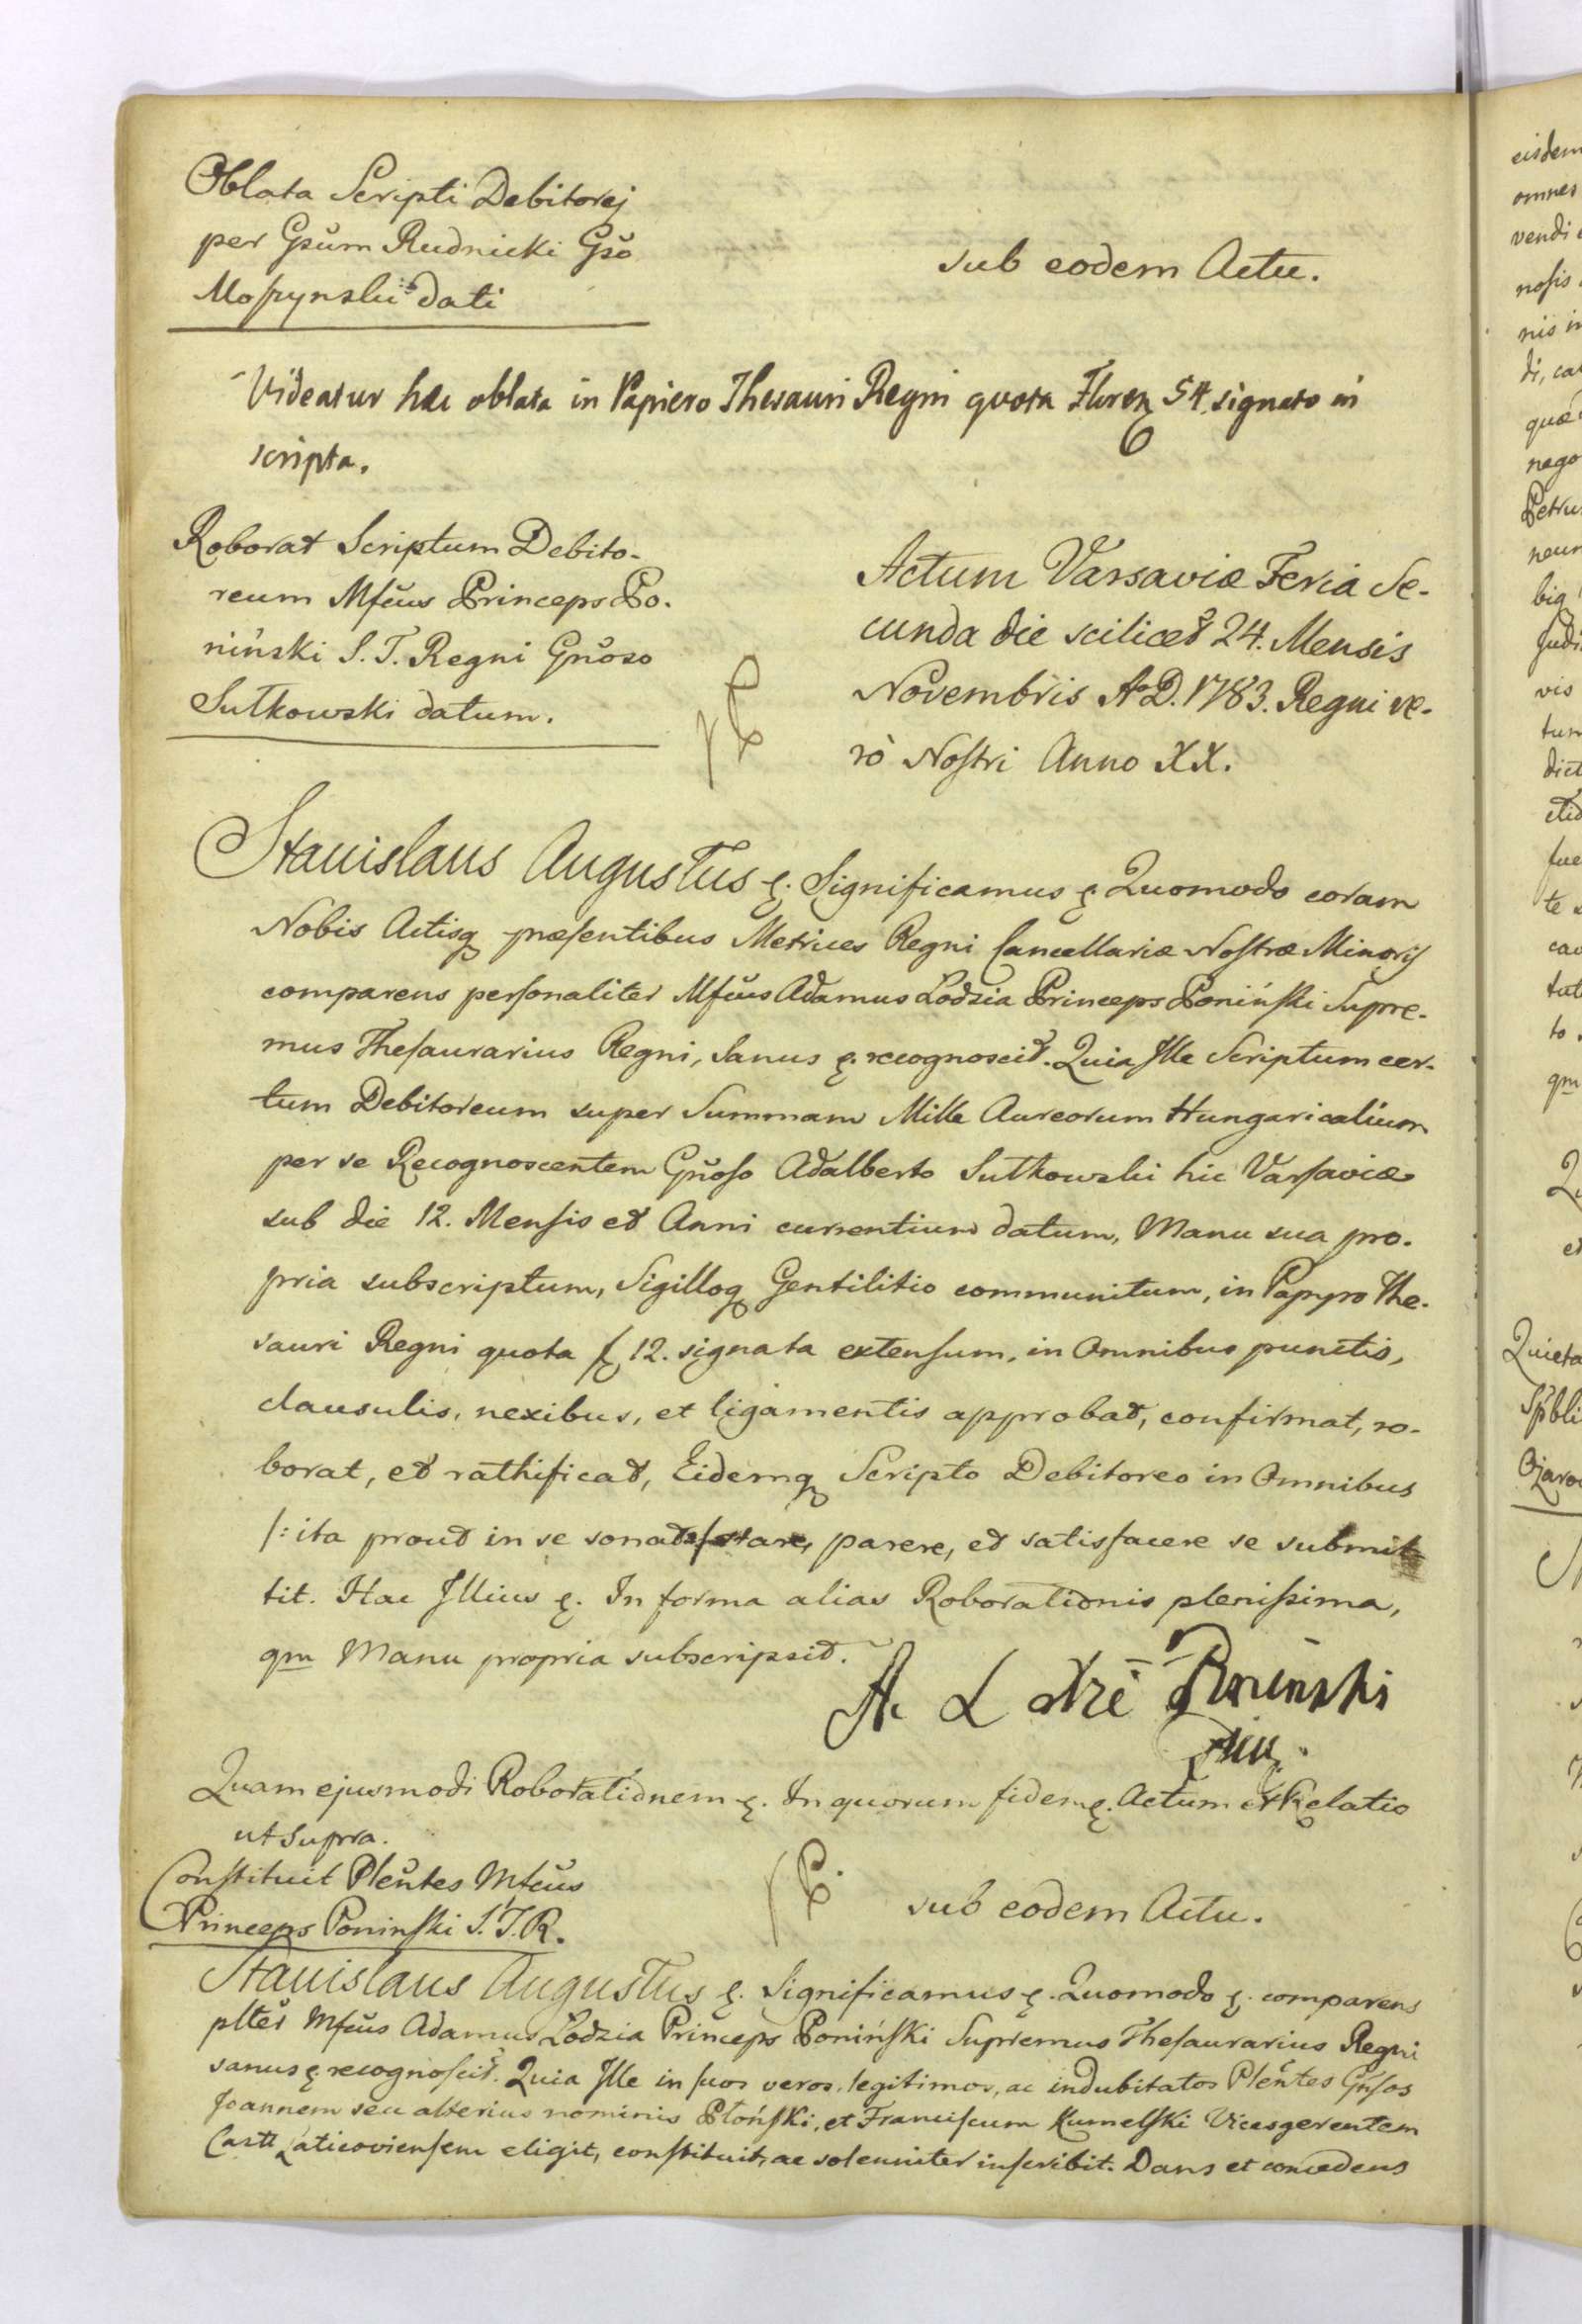 Oblata Scripti Debitorej
per Gsum Rudnicki Gso
Moszynski dati
sub eodem Actu.
Videatur hæc oblata in Papiero Thesauri Regni quota Floren 54 signato in
scripta.
Roborat Scriptum Debito-
reum Mfcus Princeps Po-
niński S. T. Regni Gnoso
Sutkowski datum.
Actum Varsaviæ Feria Se-
cunda die scilicet 24. Mensis
Novembris A. D. 1783. Regni ve-
rò Nostri Anno XX.
Stanislaus Augustus &. Significamus &. Quomodo coram
Nobis Actisq præsentibus Metrices Regni Cancellariæ Nostræ Minoris
comparens personaliter Mfcus Adamus Lodzia Princeps Poniński Supre-
mus Thesaurarius Regni, Sanus &. recognoscit. Quia Ille Scriptum cer-
tum Debitoreum super Summam Mille Aureorum Hungaricalium
per se Recognoscentem Gnoso Adalberto Sutkowski hic Varsaviæ
sub die 12. Mensis et Anni currentium datum, Manu sua pro-
pria subscriptum, Sigilloq Gentilitio communitum, in Papyro The-
sauri Regni quota f 12. signata extensum, in Omnibus punctis,
clausulis, nexibus, et ligamentis approbat, confirmat, ro-
borat, et rathificat, Eidemq Scripto Debitoreo in Omnibus
/: ita prout in se sonat stare, parere, et satisfacere se submit-
tit. Hac Illius &. In forma alias Roborationis plenissima,
qm Manu propria subscripsit.
A. L Poninski
Quam ejusmodi Roborationem &. In quorum fidem &. Actum et Relatio
ut Supra.
Constituit Plentes Mfcus
Princeps Poninski S. T. R.
sub eodem Actu.
Stanislaus Augustus &. Significamus &. Quomodo &. comparens
plter Mfcus Adamus Lodzia Princeps Poniński Supremus Thesaurarius Regni
sanus &. recognoscit. Quia Ille in suos veros, legitimos, ac indubitatos Plentes Gnsos
Joannem seu alterius nominis Płoński, et Franciscum Kumelski Vicesgerentem
Castr Laticoviensem eligit, constituit, ac solenniter inscribit. Dans et concedens